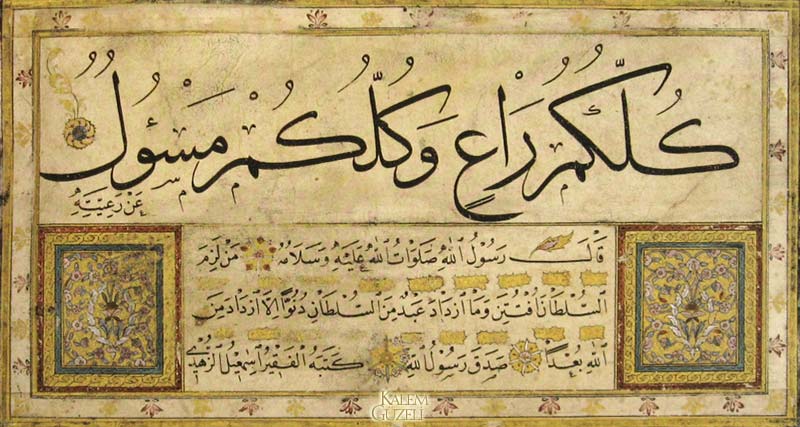 كُلُّكُمْ رَاعٍ وَكُلُّكُمْ مَسْؤُلٌ
عَنْ رَعِيَّتِهِ
قَالَ رَسُولُ اللّٰهِ صَلَوَاتُ اللّٰهِ عَلَيْهِ وَسَلَامُهُ مَنْ لَزِمَ
السُّلْطَانَ اُفْتُتِنَ وَمَا ازْدَادَ عَبْدٌ مِنَ السُّلْطَانِ دُنُوًّا اِلَّا ازْدَادَ مِنَ
اللّٰهِ بُعْدًا صَدَقَ رَسُولُ اللّٰهِ كَتَبَهُ الْفَقِيرُ اِسْمٰعِيلُ الزُّهْدِي
KALEM
GUZELI